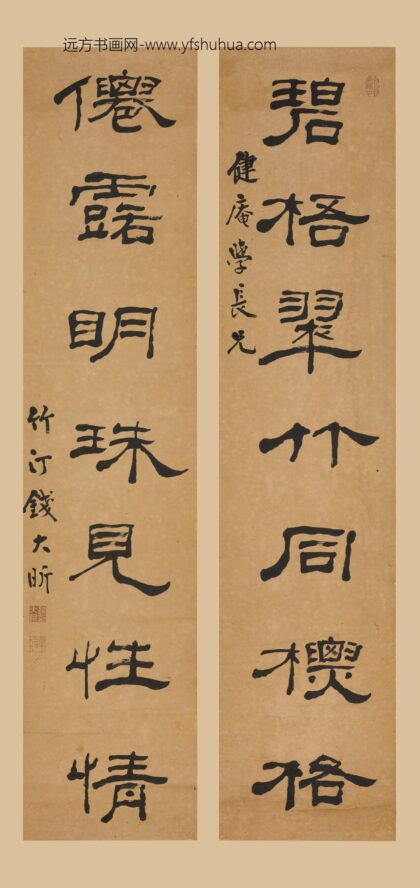 远方书画网-www.yfshuhua.com
碧梧翠竹同標格
健庵學長兄
僊露明珠見性情
竹汀錢大昕